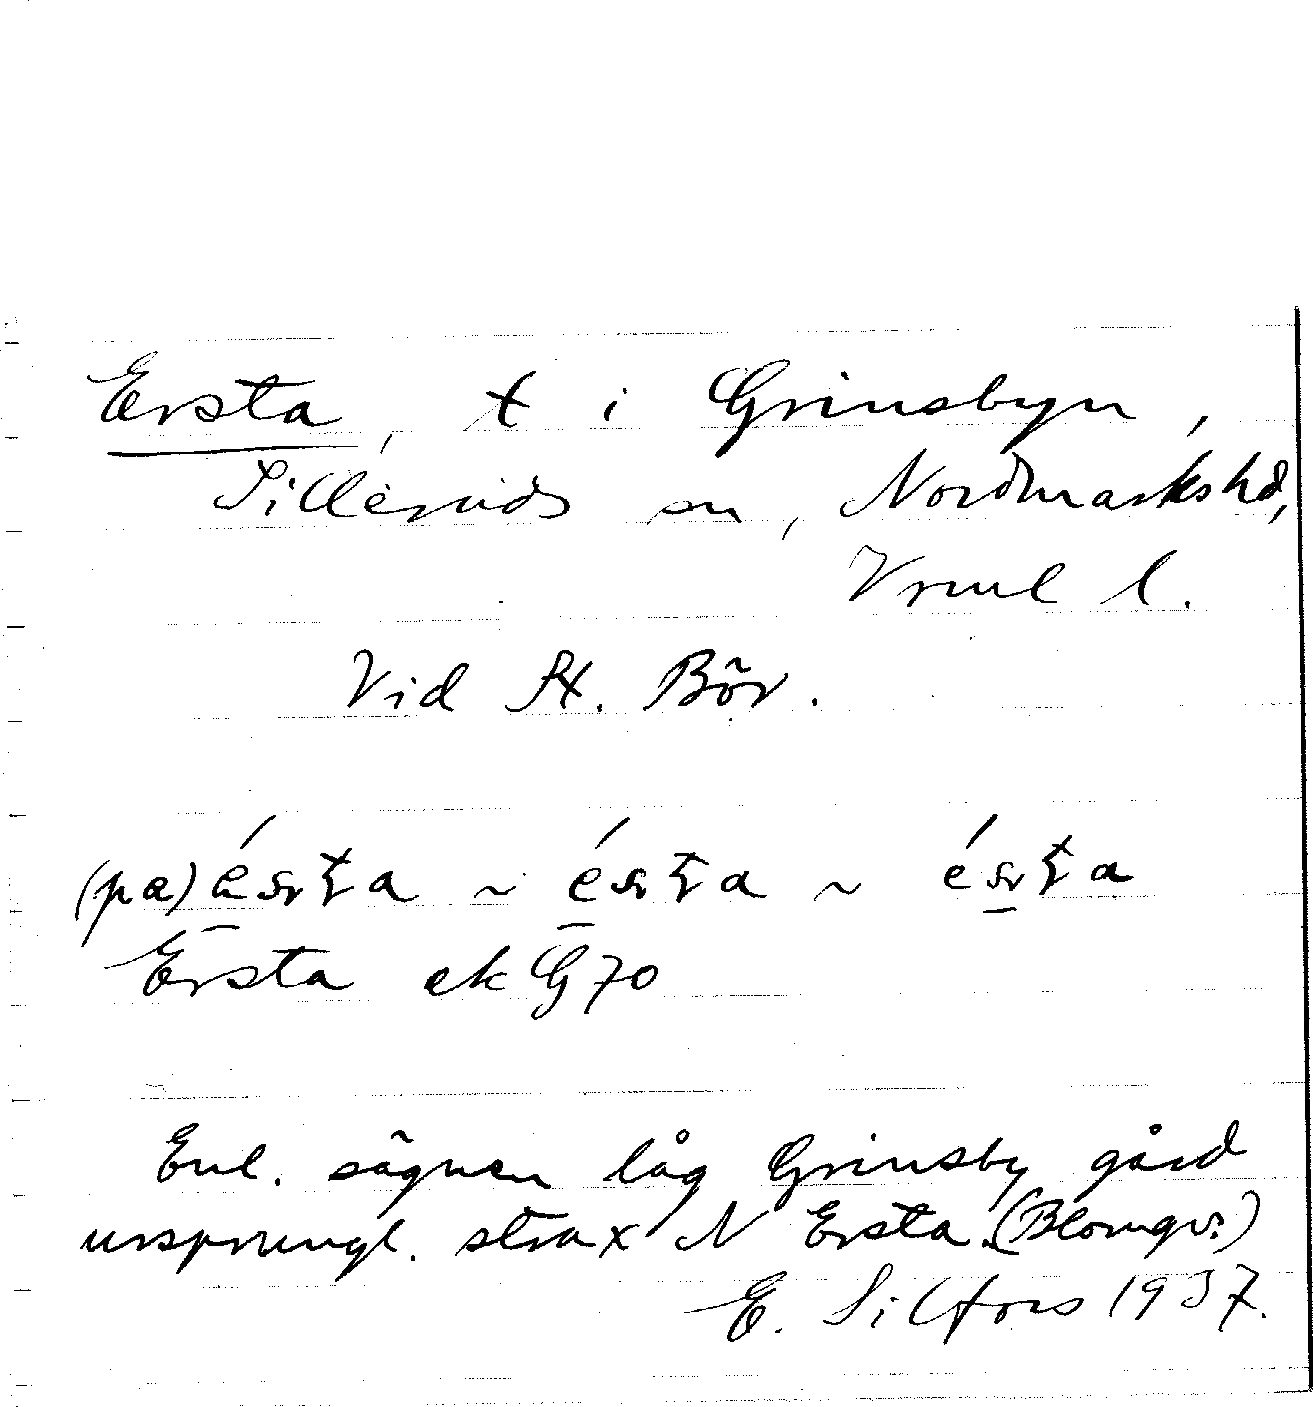 Ersta, t i Grinsbyn,
Silleruds sn, Nordmarks hd,
Vrml l.
Vid St. Bör.
(pa) ésta ~ ésta ~ ésta
Ersta ek G 70
Enl. sägnen låg Grinsby gård
ursprungl. strax N Ersta. (Blomqv.)
E. Silfors 1937.